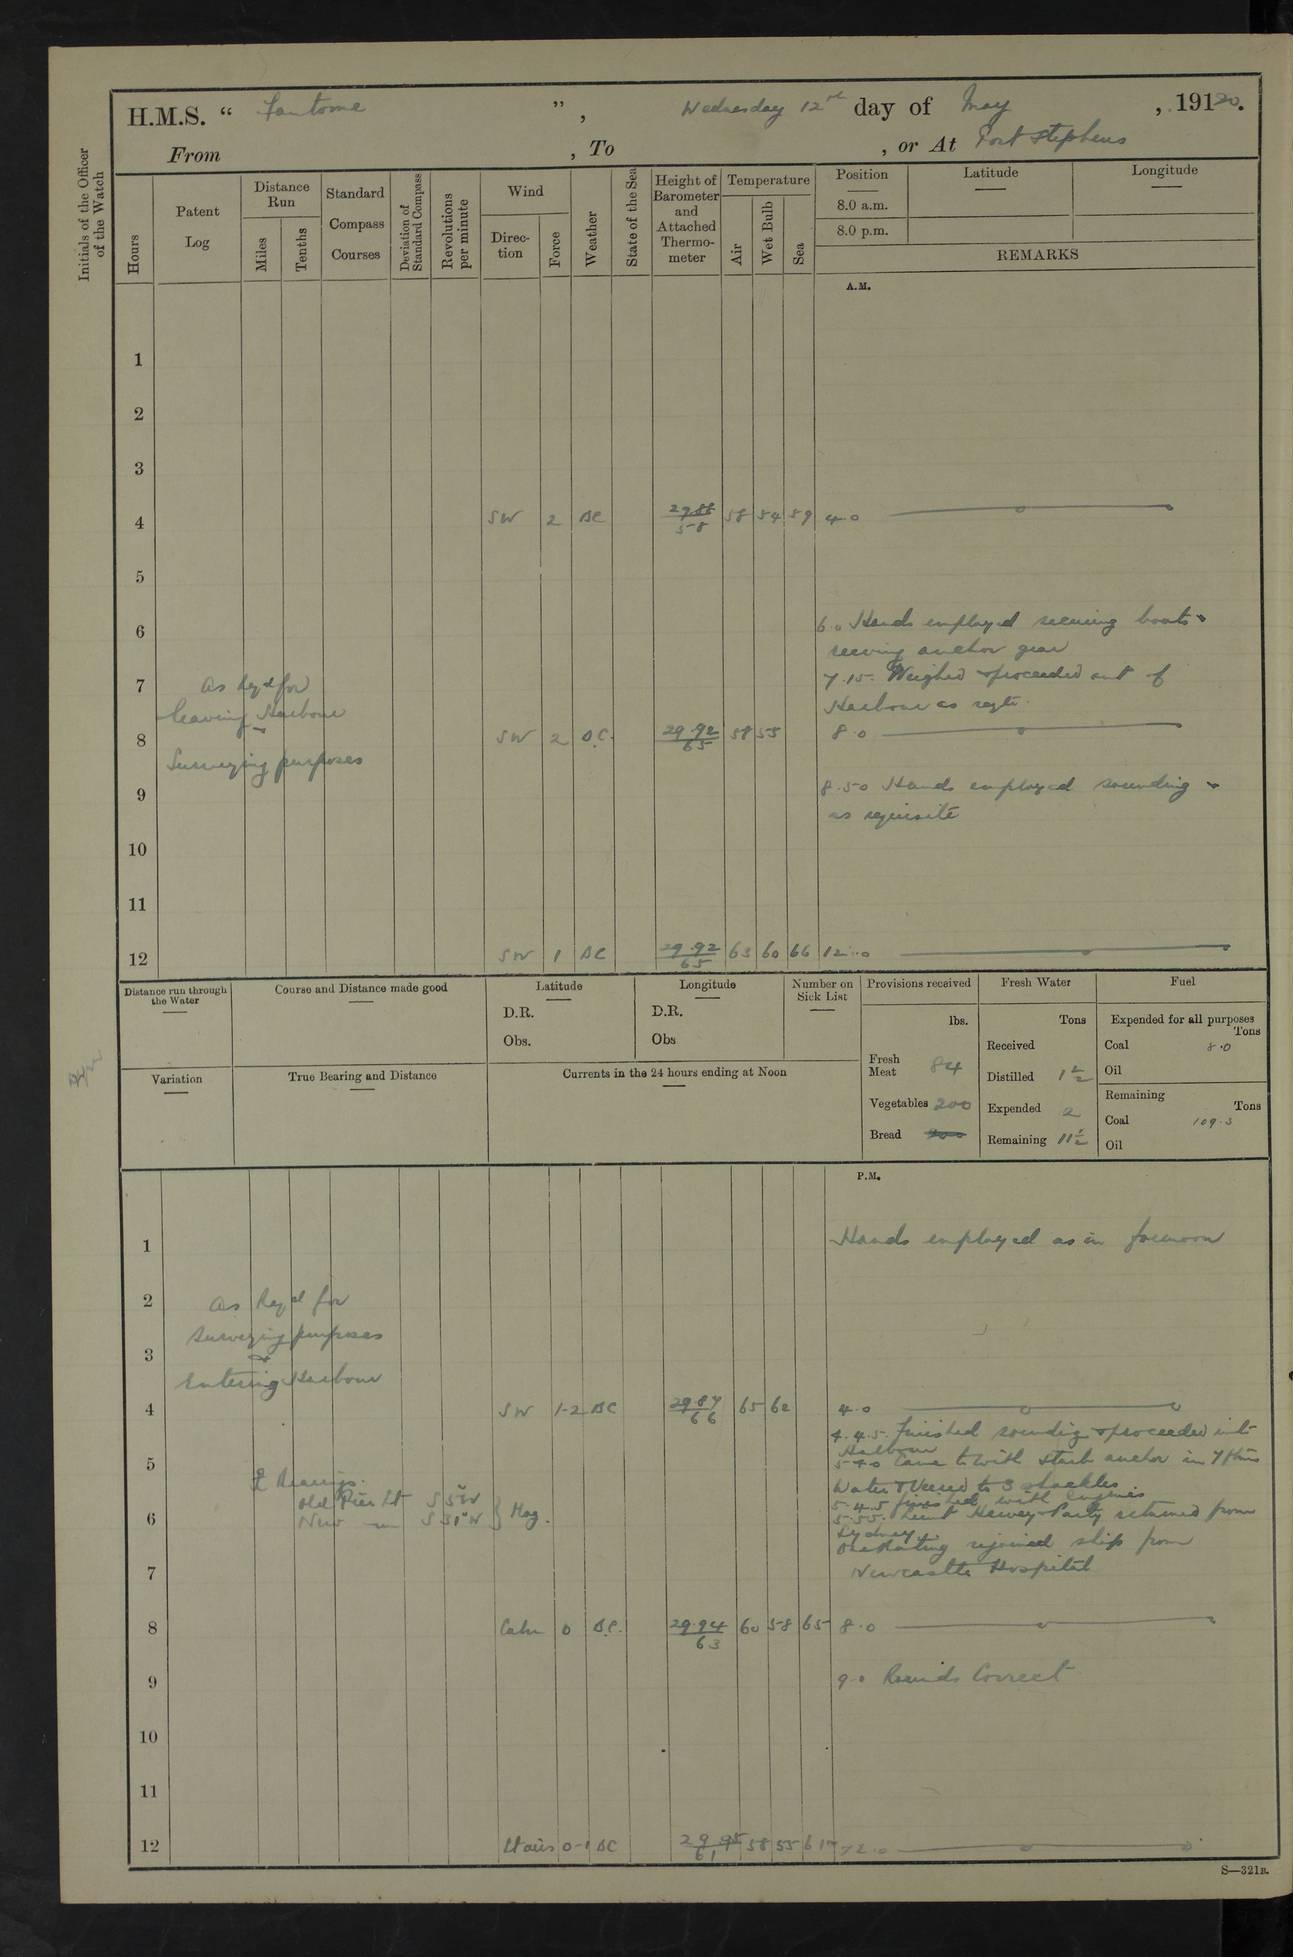 H.M.S. “ Fantome ”, Wednesday 12th day of May, 19120.
From , To , or At Port Stephens
Initials of the Officer of the Watch
Hours
Patent Log
Distance Run
Miles
Tenths
Standard Compass Courses
Deviation of Standard Compass
Revolutions per minute
Wind
Direction
Force
Weather
State of the Sea
Height of Barometer and Attached Thermometer
Temperature
Air
Wet Bulb
Sea
Position
8.0 a.m.
8.0 p.m.
Latitude
Longitude
REMARKS
A.M.
1
2
3
4 SW 2 BC 29.88 58 58 54 59 4.0
5
6 6.0 Hands employed securing boats &
reeving anchor gear
7 As Reqd for 7.15. Weighed & proceeded out of
leaving Harbour Harbour as reqte.
8 SW 2 B.C. 29.92 65 58 55 8.0
& Surveying purposes
9 8.50 Hands employed sounding &
as requisite
10
11
12 SW 1 BC 29.92 65 63 60 66 12.0
Distance run through the Water
Course and Distance made good
Latitude
D.R.
Obs.
Longitude
D.R.
Obs
Number on Sick List
Provisions received
lbs.
Fresh Meat 84
Vegetables 200
Bread
Fresh Water
Tons
Received
Distilled 1½
Expended 2
Remaining 11½
Fuel
Expended for all purposes
Tons
Coal 8.0
Oil
Remaining
Tons
Coal 109.3
Oil
Variation
True Bearing and Distance
Currents in the 24 hours ending at Noon
P.M.
1 Hands employed as in forenoon
2 As Reqd for
Surveying purposes
3 &
Entering Harbour
4 SW 1-2 BC 29.87 66 65 62 4.0
4.45. Finished sounding & proceeded into
Harbour
5 5.40 Came to with starb anchor in 7 fms
⚓ Bearings. Water & Veered to 3 shackles
Old Pier Lt S 5° W 5.45 finished with engines
6 New — S 31° W } Mag. 5.55. Lieut Hewey & Party returned from
Sydney.
One Rating rejoined ship from
7 Newcastle Hospital
8 Calm 0 B.C. 29.94 63 60 58 65 8.0
9 9.0 Rounds Correct
10
11
12 Lt airs 0-1 BC 29.95 61 58 55 61 12.0
S—321B.